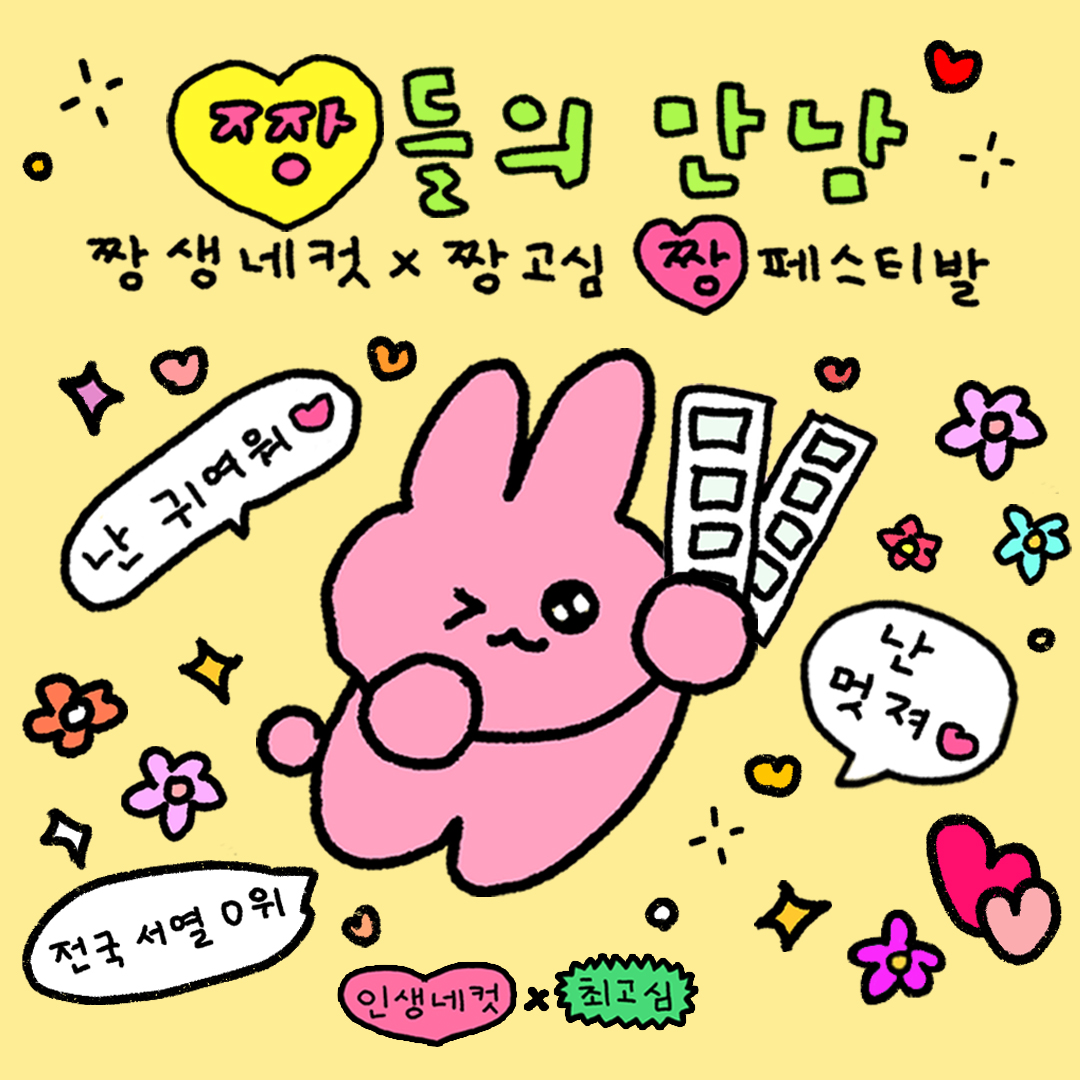 짱들의 만남
짱생네컷 x 짱고심 짱 페스티발
난 귀여워
난
멋져
전국 서열 0위
인생네컷 x 최고심